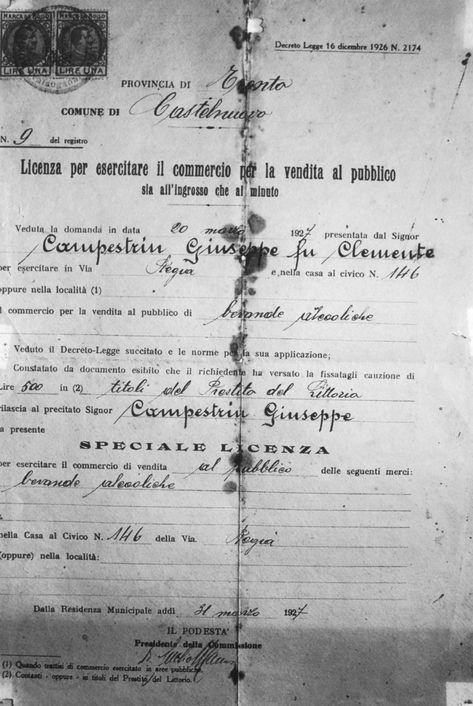 MARCA DA BOLLO MARCA DA BOLLO
LIRE UNA LIRE UNA
Decreto Legge 16 dicembre 1926 N. 2174
PROVINCIA DI Trento
COMUNE DI Castelnuovo
N. 9 del registro
Licenza per esercitare il commercio per la vendita al pubblico
sia all'ingrosso che al minuto
Veduta la domanda in data 20 marzo 1927 presentata dal Signor
Campestrin Giuseppe fu Clemente
per esercitare in Via Regia e nella casa al civico N. 146
oppure nella località (1)
il commercio per la vendita al pubblico di bevande alcoliche
Veduto il Decreto-Legge succitato e le norme per la sua applicazione;
Constatato da documento esibito che il richiedente ha versato la fissatagli cauzione di
Lire 500 in (2) titoli del Prestito del Littorio
rilascia al precitato Signor Campestrin Giuseppe
la presente
SPECIALE LICENZA
per esercitare il commercio di vendita al pubblico delle seguenti merci:
bevande alcoliche
nella Casa al Civico N. 146 della Via. Regia
(oppure) nella località:
Dalla Residenza Municipale addì 31 marzo 1927
IL PODESTA'
Presidente della Commissione
(1) Quando trattisi di commercio esercitato in aree pubbliche.
(2) Contanti - oppure - in titoli del Prestito del Littorio.